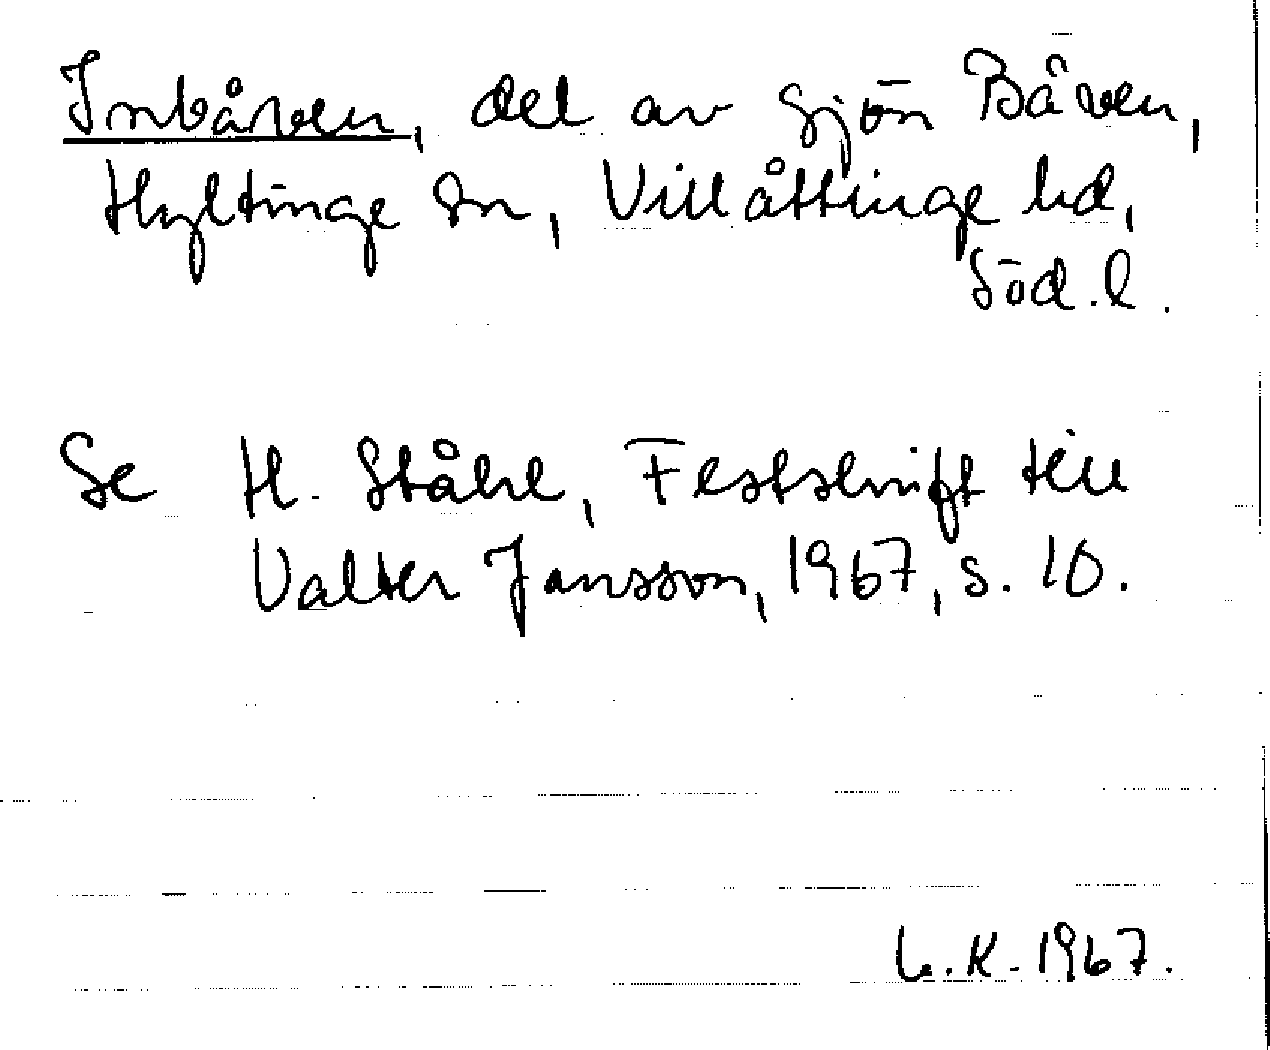 Inbåven, del av sjön Båven,
Hyltinge sn, Villåttinge hd,
Söd. l.
Se H. Ståhl, Festskrift till
Valter Jansson, 1967, s. 10.
L. K. 1967.